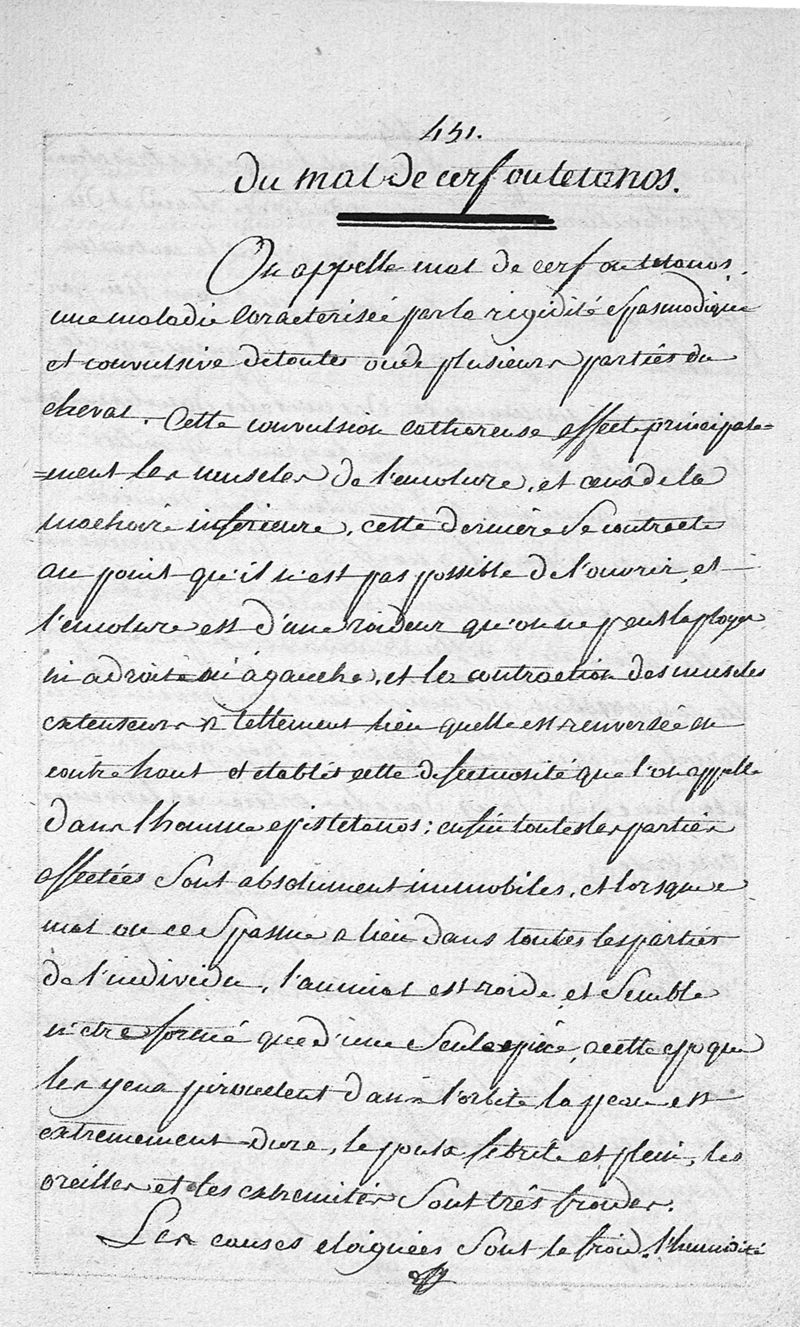 451.
Du mal de cerf ou tetanos.
On appelle mal de cerf ou tetanos
une maladie Caracterisée par la rigidité Spasmodique
et convulsive de toutes ou de plusieurs parties du
cheval. Cette convulsion cathareuse affecte principale=
=ment les muscles de l'encolure, et ceux de la
machoire inferieure, cette derniere Se contracte
au point qu'il n'est pas possible de l'ouvrir, et
l'encolure est d'une roideur qu'on ne peut la ployer
ni a droite ni a gauche, et la contraction des muscles
extenseurs a tellement lieu quelle est renversée en
contre haut et etablis cette defectuosité que l'on appelle
dans l'homme epistetanos; enfin toutes les parties
affectées Sont absolument immobiles, et lorsque ce
mal ou ce Spasme a lieu dans toutes les parties
de l'individu, l'animal est roide et Semble
n'etre formé que d'une Seule piece, a cette epoque
les yeux pirouettent dans l'orbite la peau est
extremement dure, le poulx febrile et plein, les
oreilles et les extremités Sont très froides.
Les causes eloignées Sont le froid, l'humidité